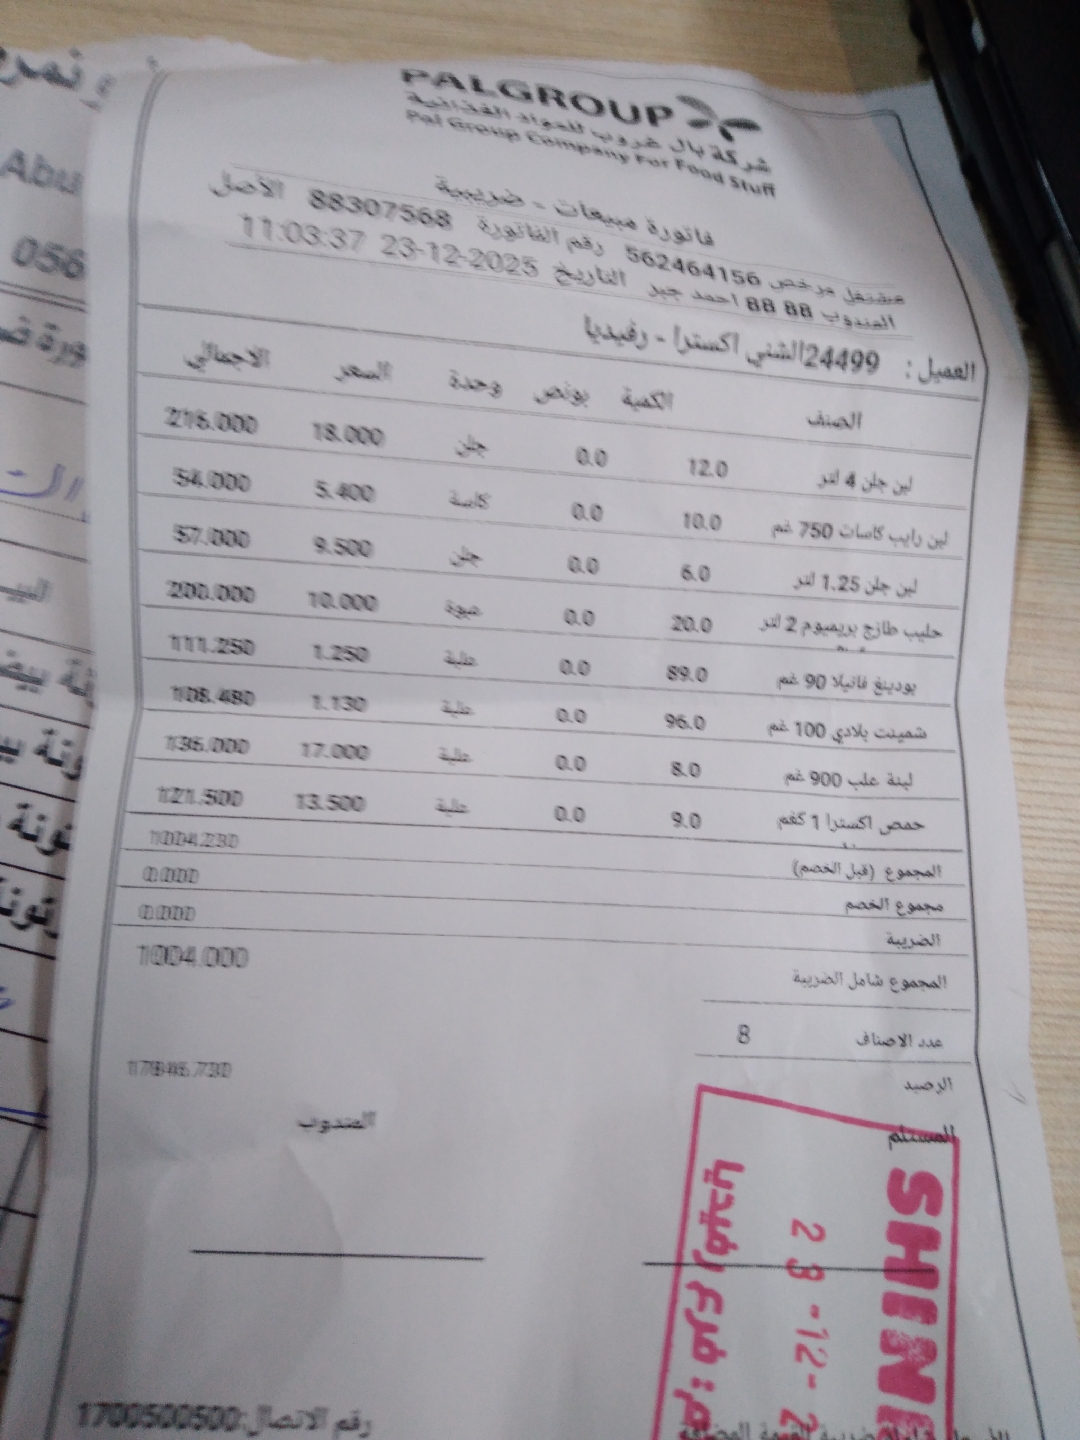 PALGROUP
شركة بال غروب للمواد الغذائية
Pal Group Company For Food Stuff
فاتورة مبيعات - ضريبية
مشتغل مرخص 562464156 رقم الفاتورة 88307568 الأصل
المندوب 88 88 احمد جبر التاريخ 23-12-2025 11:03:37
العميل : 24499الشني اكسترا - رفيديا
الصنف الكمية بونص وحدة السعر الاجمالي
لبن جلن 4 لتر 12.0 0.0 جلن 18.000 216.000
لبن رايب كاسات 750 غم 10.0 0.0 كاسة 5.400 54.000
لبن جلن 1.25 لتر 6.0 0.0 جلن 9.500 57.000
حليب طازج بريميوم 2 لتر 20.0 0.0 عبوة 10.000 200.000
بودينغ فانيلا 90 غم 89.0 0.0 علبة 1.250 111.250
شمينت بلادي 100 غم 96.0 0.0 علبة 1.130 108.480
لبنة علب 900 غم 8.0 0.0 علبة 17.000 136.000
حمص اكسترا 1 كغم 9.0 0.0 علبة 13.500 121.500
المجموع (قبل الخصم) 1004.230
مجموع الخصم 0.000
الضريبة 0.000
المجموع شامل الضريبة 1004.000
عدد الاصناف 8
الرصيد
المستلم المندوب
SHINI
23 -12- 2
فرع رفيديا
رقم الاتصال:1700500500
ضريبة القيمة المضافة
Abu
056